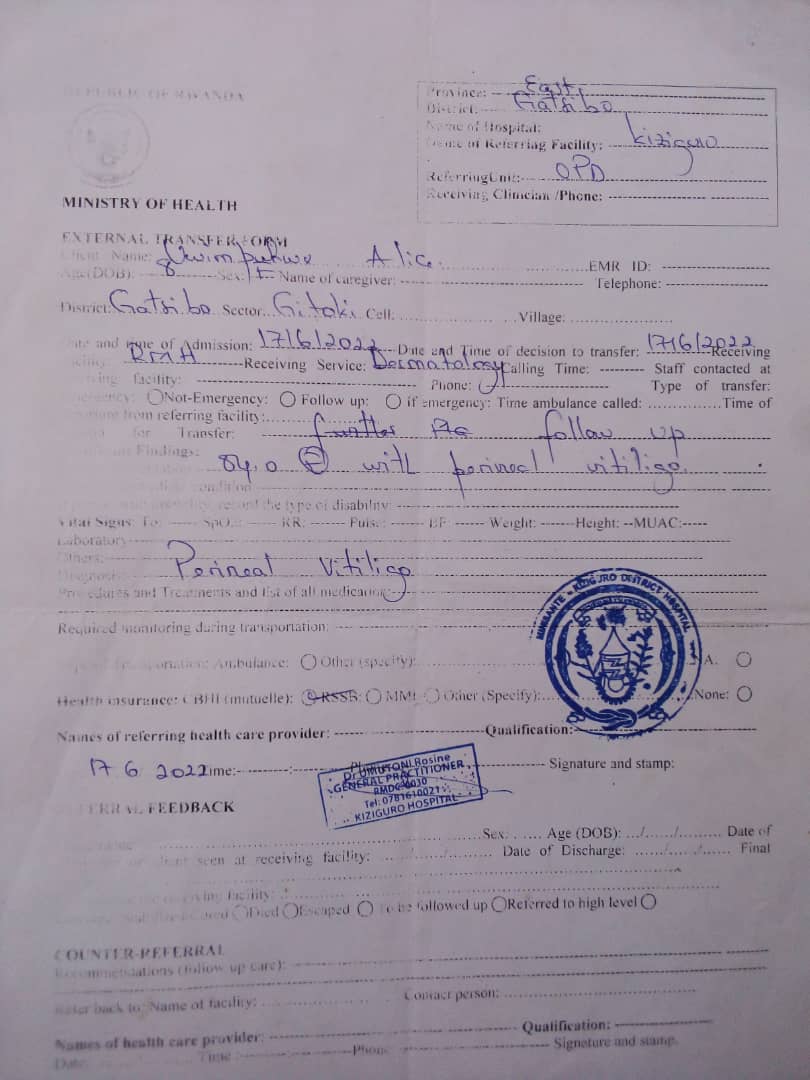 REPUBLIC OF RWANDA
Province: East
District: Gatsibo
Name of Hospital:
Name of Referring Facility: Kiziguro
Referring Unit: OPD
Receiving Clinician /Phone:
MINISTRY OF HEALTH
EXTERNAL TRANSFER FORM
Client Name: Alice EMR ID:
Age(DOB): 8 Sex: F Name of caregiver: Telephone:
District: Gatsibo Sector Gitoki Cell: Village:
Date and time of Admission: 17/6/2022 Date and Time of decision to transfer: 17/6/2022 Receiving
facility: RMH Receiving Service: Dermatology Calling Time: Staff contacted at
receiving facility: Phone: Type of transfer:
Emergency: Not-Emergency: Follow up: if emergency: Time ambulance called: Time of
departure from referring facility:
Reason for Transfer: further follow up
Findings:
8y.o F with perineal vitiligo.
condition
record the type of disability:
Vital Signs: To: SpO2: RR: Pulse: BP Weight: Height: MUAC:
Laboratory
Others:
Diagnosis: Perineal Vitiligo
Procedures and Treatments and list of all medication:
Required monitoring during transportation:
Ambulance: Other (specify): N.A.
Health insurance: CBHI (mutuelle): RSSB: MMI Other (Specify): None:
MINISANTE - KIZIGURO DISTRICT HOSPITAL
Names of referring health care provider: Qualification:
17 6 2022 Time: Signature and stamp:
Dr UMUTONI Rosine
GENERAL PRACTITIONER
Tel: 0781610021
KIZIGURO HOSPITAL
REFERRAL FEEDBACK
Sex: Age (DOB): .../....../ Date of
seen at receiving facility: .../....../ Date of Discharge: .../....../ Final
receiving facility:
Died Escaped To be followed up Referred to high level
COUNTER-REFERRAL
Recommendations (follow up care):
Refer back to: Name of facility: Contact person:
Names of health care provider: Qualification:
Date: Time : Phone Signature and stamp.